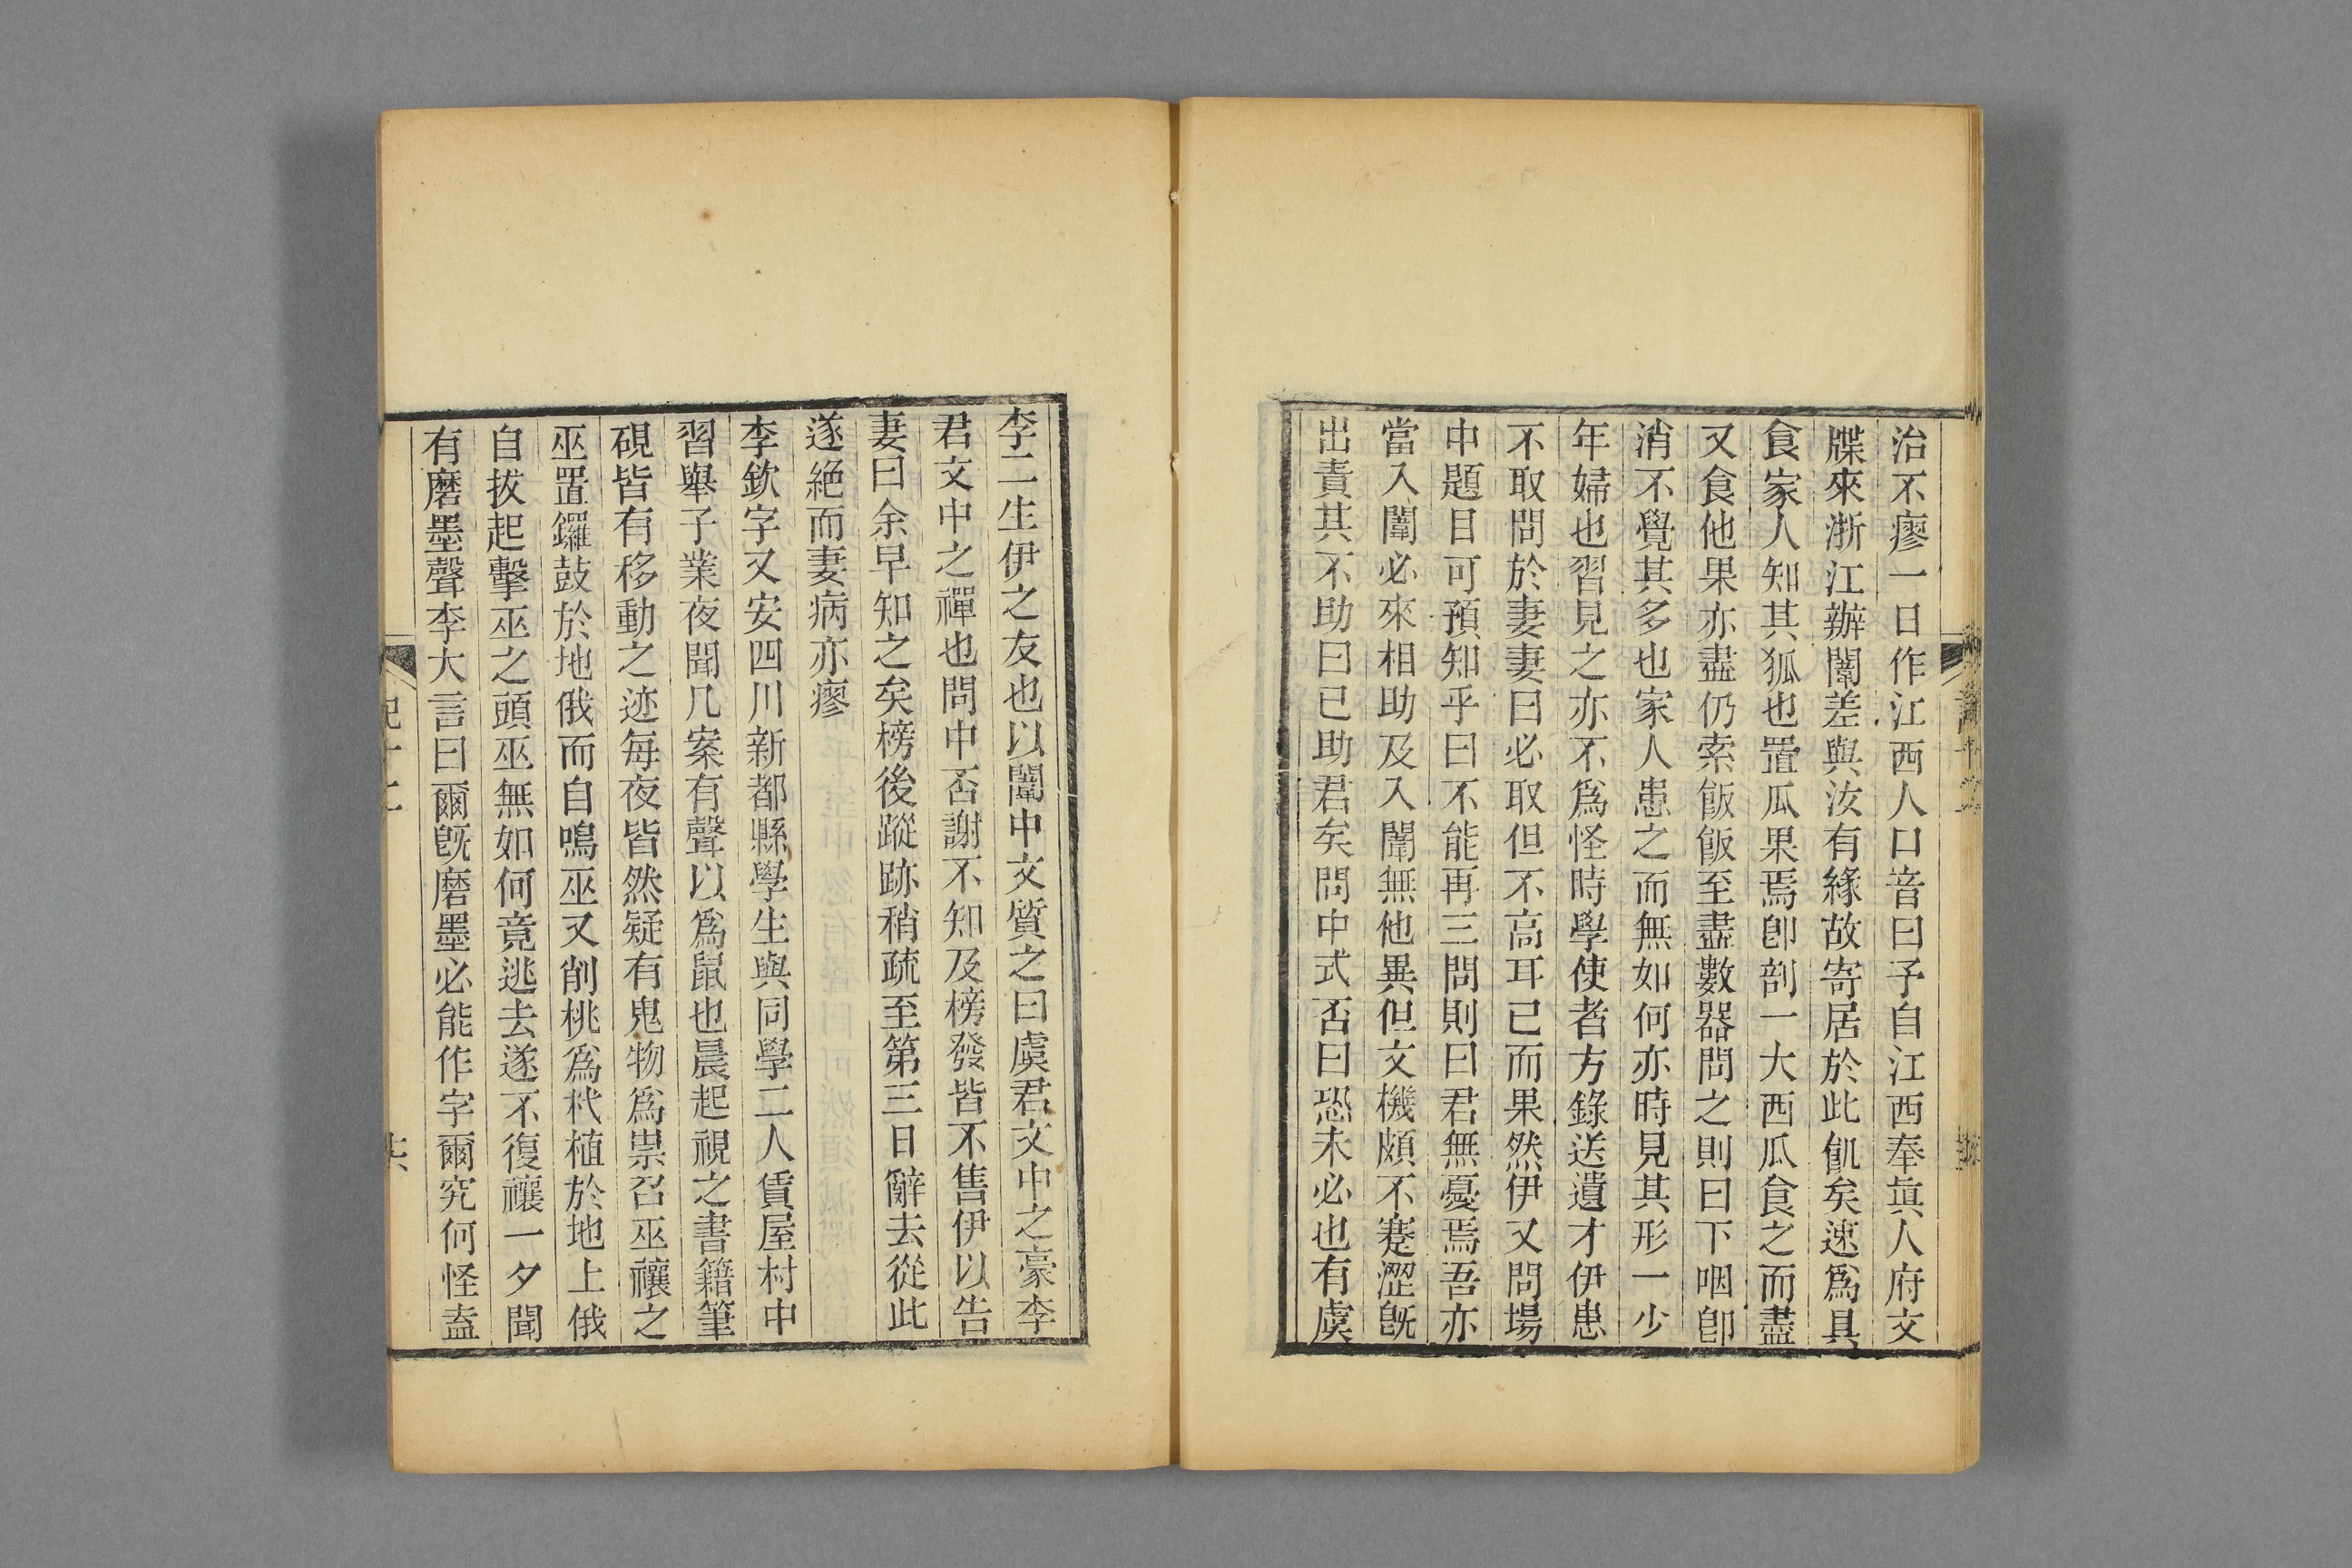 治不瘳一日作江西人口音曰予自江西奉眞人府文
牒來浙江辦闈差與汝有緣故寄居於此飢矣速爲具
食家人知其狐也置瓜果焉卽剖一大西瓜食之而盡
又食他果亦盡仍索飯飯至盡數器問之則曰下咽卽
消不覺其多也家人患之而無如何亦時見其形一少
年婦也習見之亦不爲怪時學使者方錄送遺才伊患
不取問於妻妻曰必取但不高耳已而果然伊又問場
中題目可預知乎曰不能再三問則曰君無憂焉吾亦
當入闈必來相助及入闈無他異但文機頗不蹇澀旣
出責其不助曰已助君矣問中式否曰恐未必也有虞
李二生伊之友也以闈中文質之曰虞君文中之豪李
君文中之禪也問中否謝不知及榜發皆不售伊以告
妻曰余早知之矣榜後蹤跡稍疏至第三日辭去從此
遂絕而妻病亦瘳
李欽字又安四川新都縣學生與同學二人賃屋村中
習舉子業夜聞几案有聲以爲鼠也晨起視之書籍筆
硯皆有移動之迹每夜皆然疑有鬼物爲祟召巫禳之
巫置鑼鼓於地俄而自鳴巫又削桃爲杙植於地上俄
自拔起擊巫之頭巫無如何竟逃去遂不復禳一夕聞
有磨墨聲李大言曰爾旣磨墨必能作字爾究何怪盍